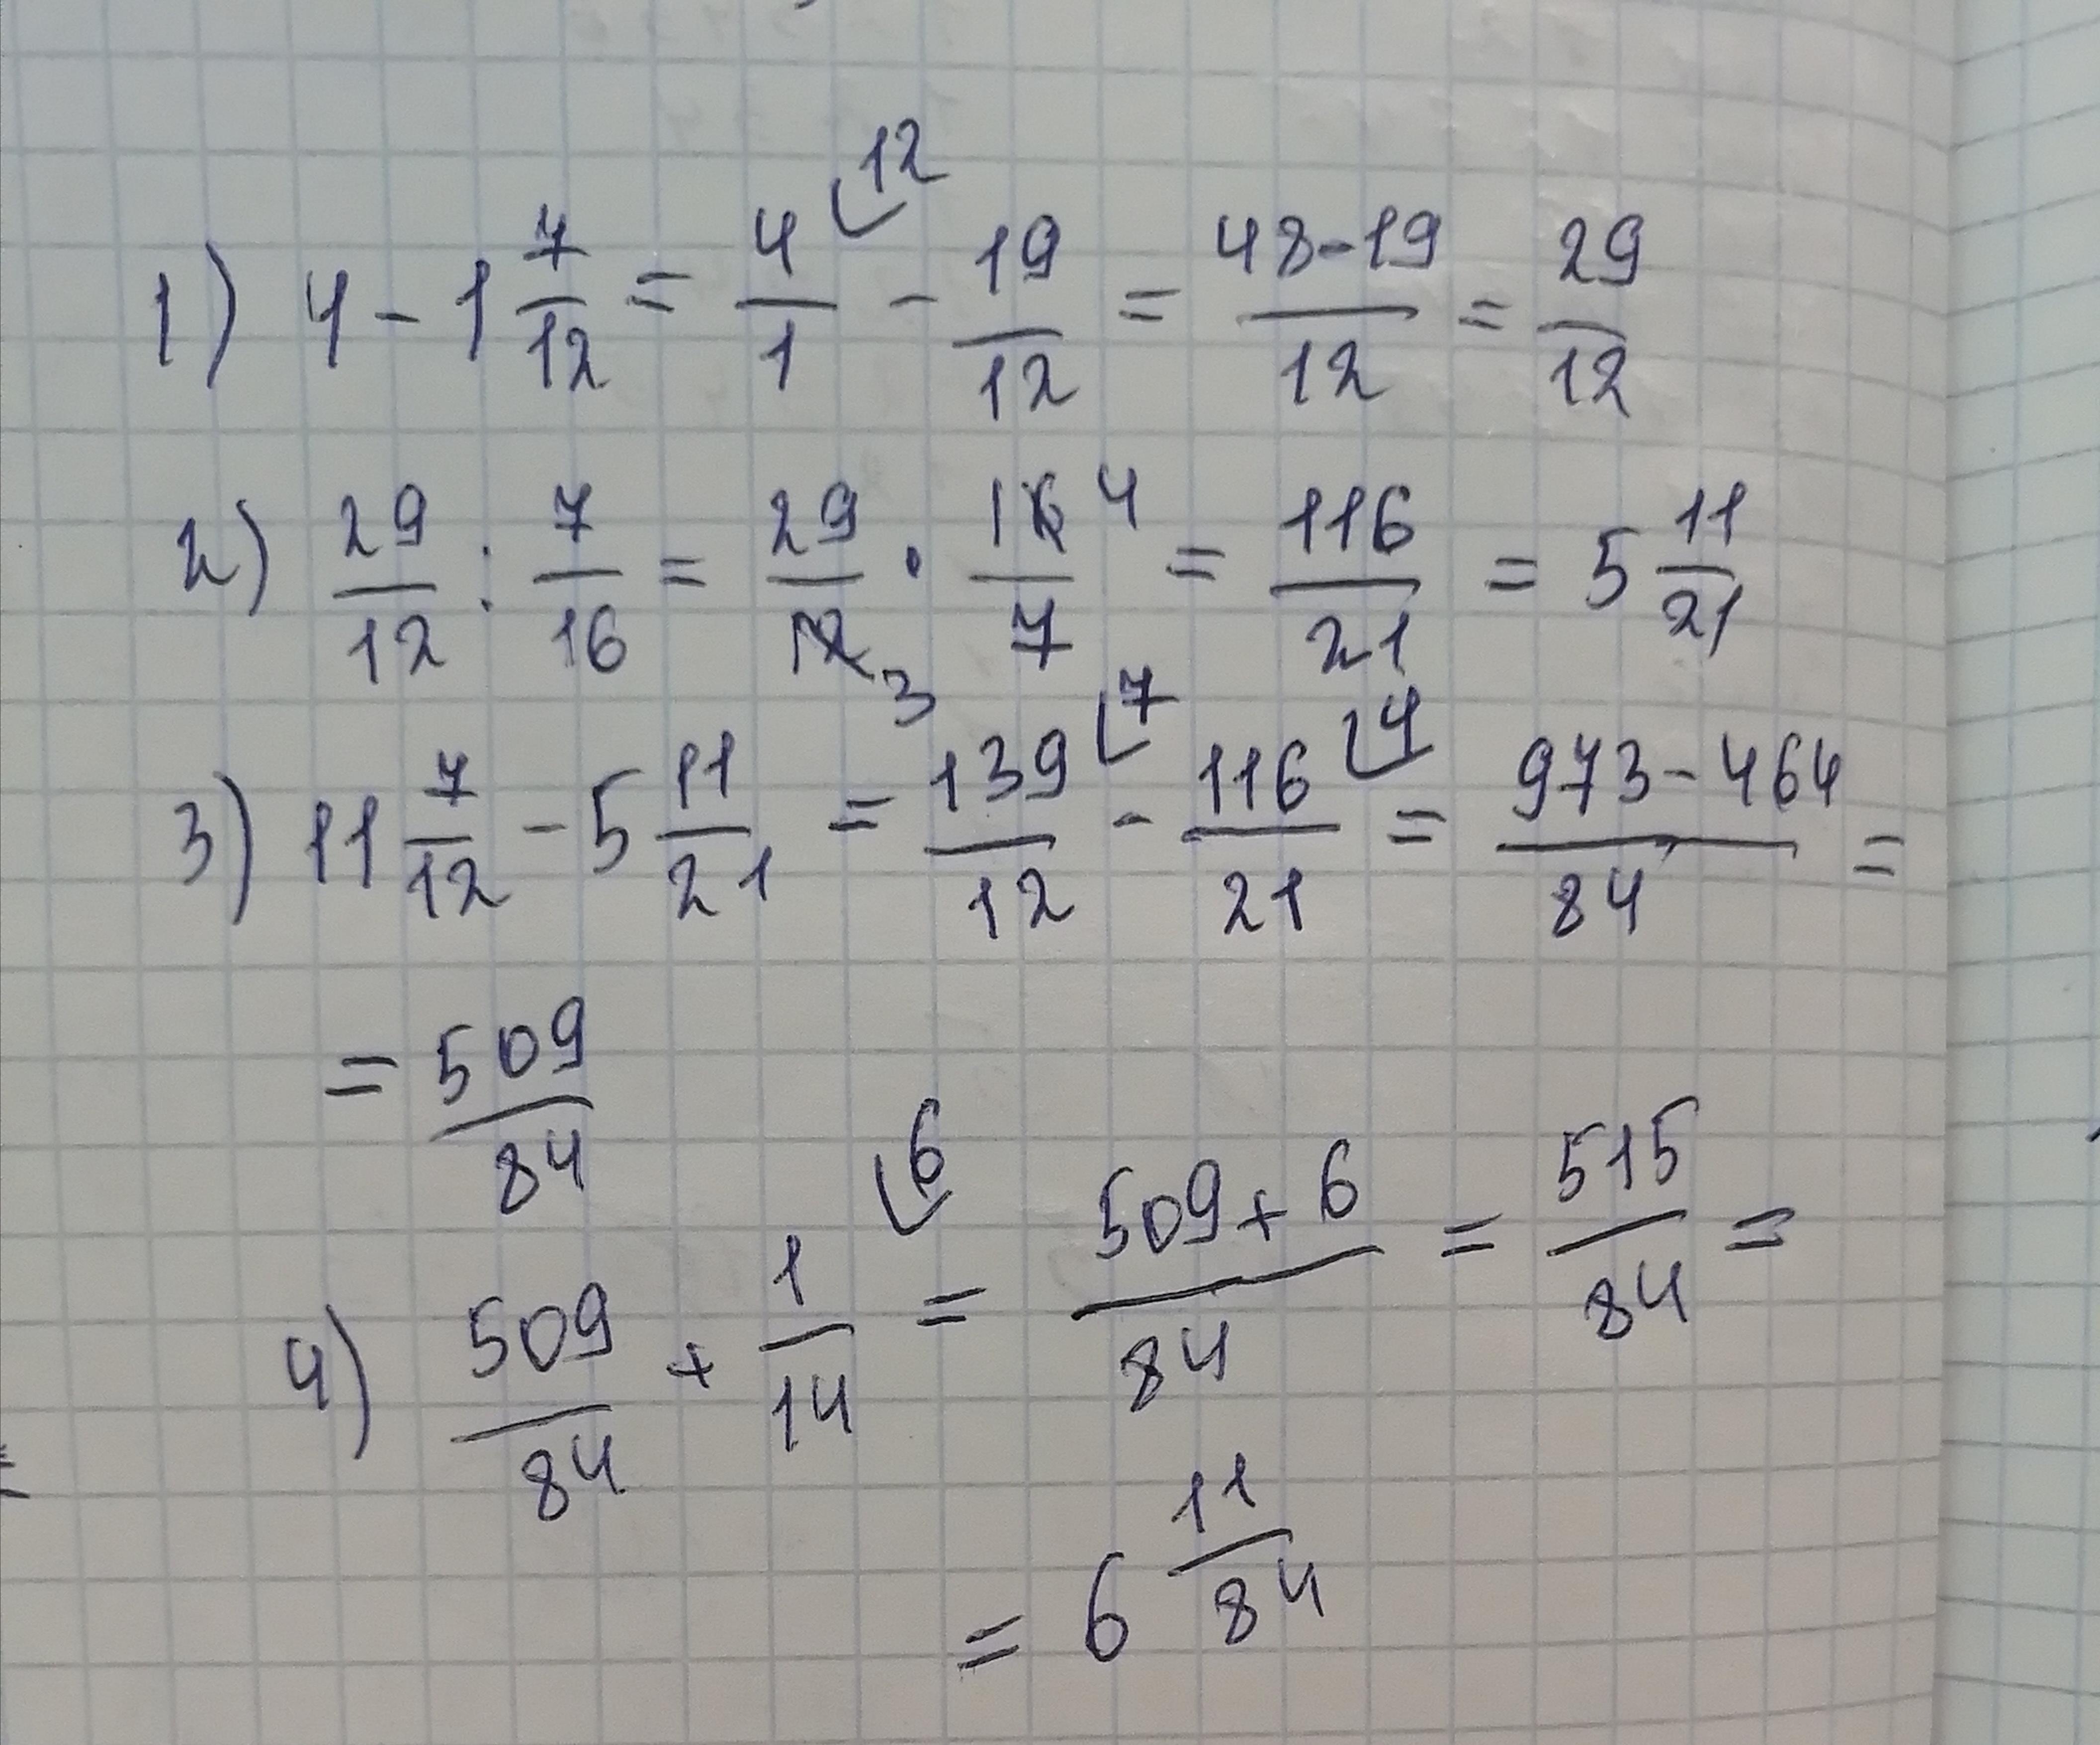 1) 4 - 1 7/12 = 4/1 ⌞12 - 19/12 = 48-19/12 = 29/12
2) 29/12 : 7/16 = 29/12 3 · 16 4/7 = 116/21 = 5 11/21
3) 11 7/12 - 5 11/21 = 139/12 ⌞7 - 116/21 ⌞4 = 973-464/84 =
= 509/84
4) 509/84 + 1/14 ⌞6 = 509+6/84 = 515/84 =
= 6 11/84